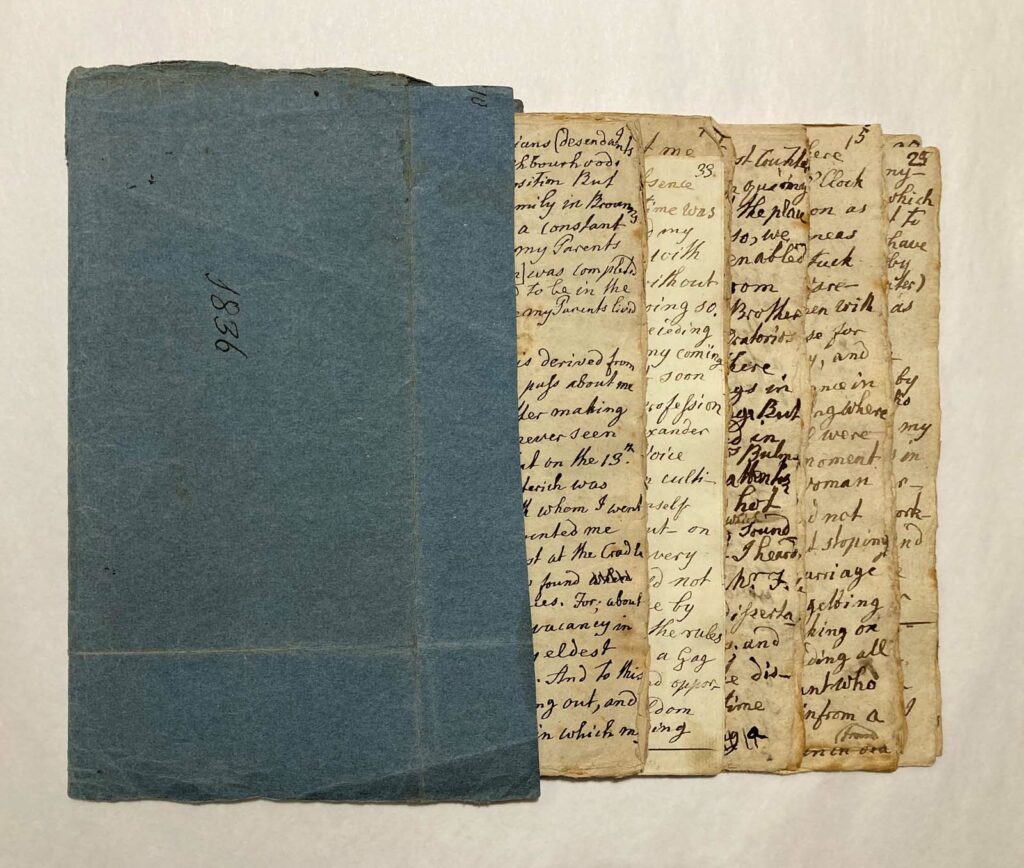 1836
10
ians (desendants
ghbourhood
osition But
mily in Brown
a constant
my Parents
was completed
to be in the
my Parents lived
is derived from
puss about me
ter making
never seen
t on the 13.th
terich was
whom I went
inted me
st at the Cradle
found
les. For; about
vacancy in
eldest
. And to this
ng out, and
in which m
7
t me
33
bsence
time was
my
with
without
oing so.
my coming
soon
rofession
xander
voice
culti-
mself
ut- on
very
d not
e by
the rules
a Gag
d oppor-
ldom
ing
st
the play
so, we
enabled
rom
Brother
Oratorios
here
gs in
But
in
hot
found
I heard
Mr. F.
disserta-
s. and
dis-
time
15
here
Clock
on as
neas
tuck
en with
se for
y, and
ence in
ng where
were
moment
woman
d not
stoping
arriage
getting
king on
ding all
ant who
infrom a
25
ny-
which
to
have
by
iter)
as
by
my
in
ork-
nd